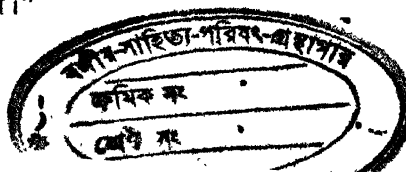 ।"
বঙ্গীয়-সাহিত্য-পরিষৎ-গ্রন্থাগার
ক্রমিক নং
শ্রেণী নং